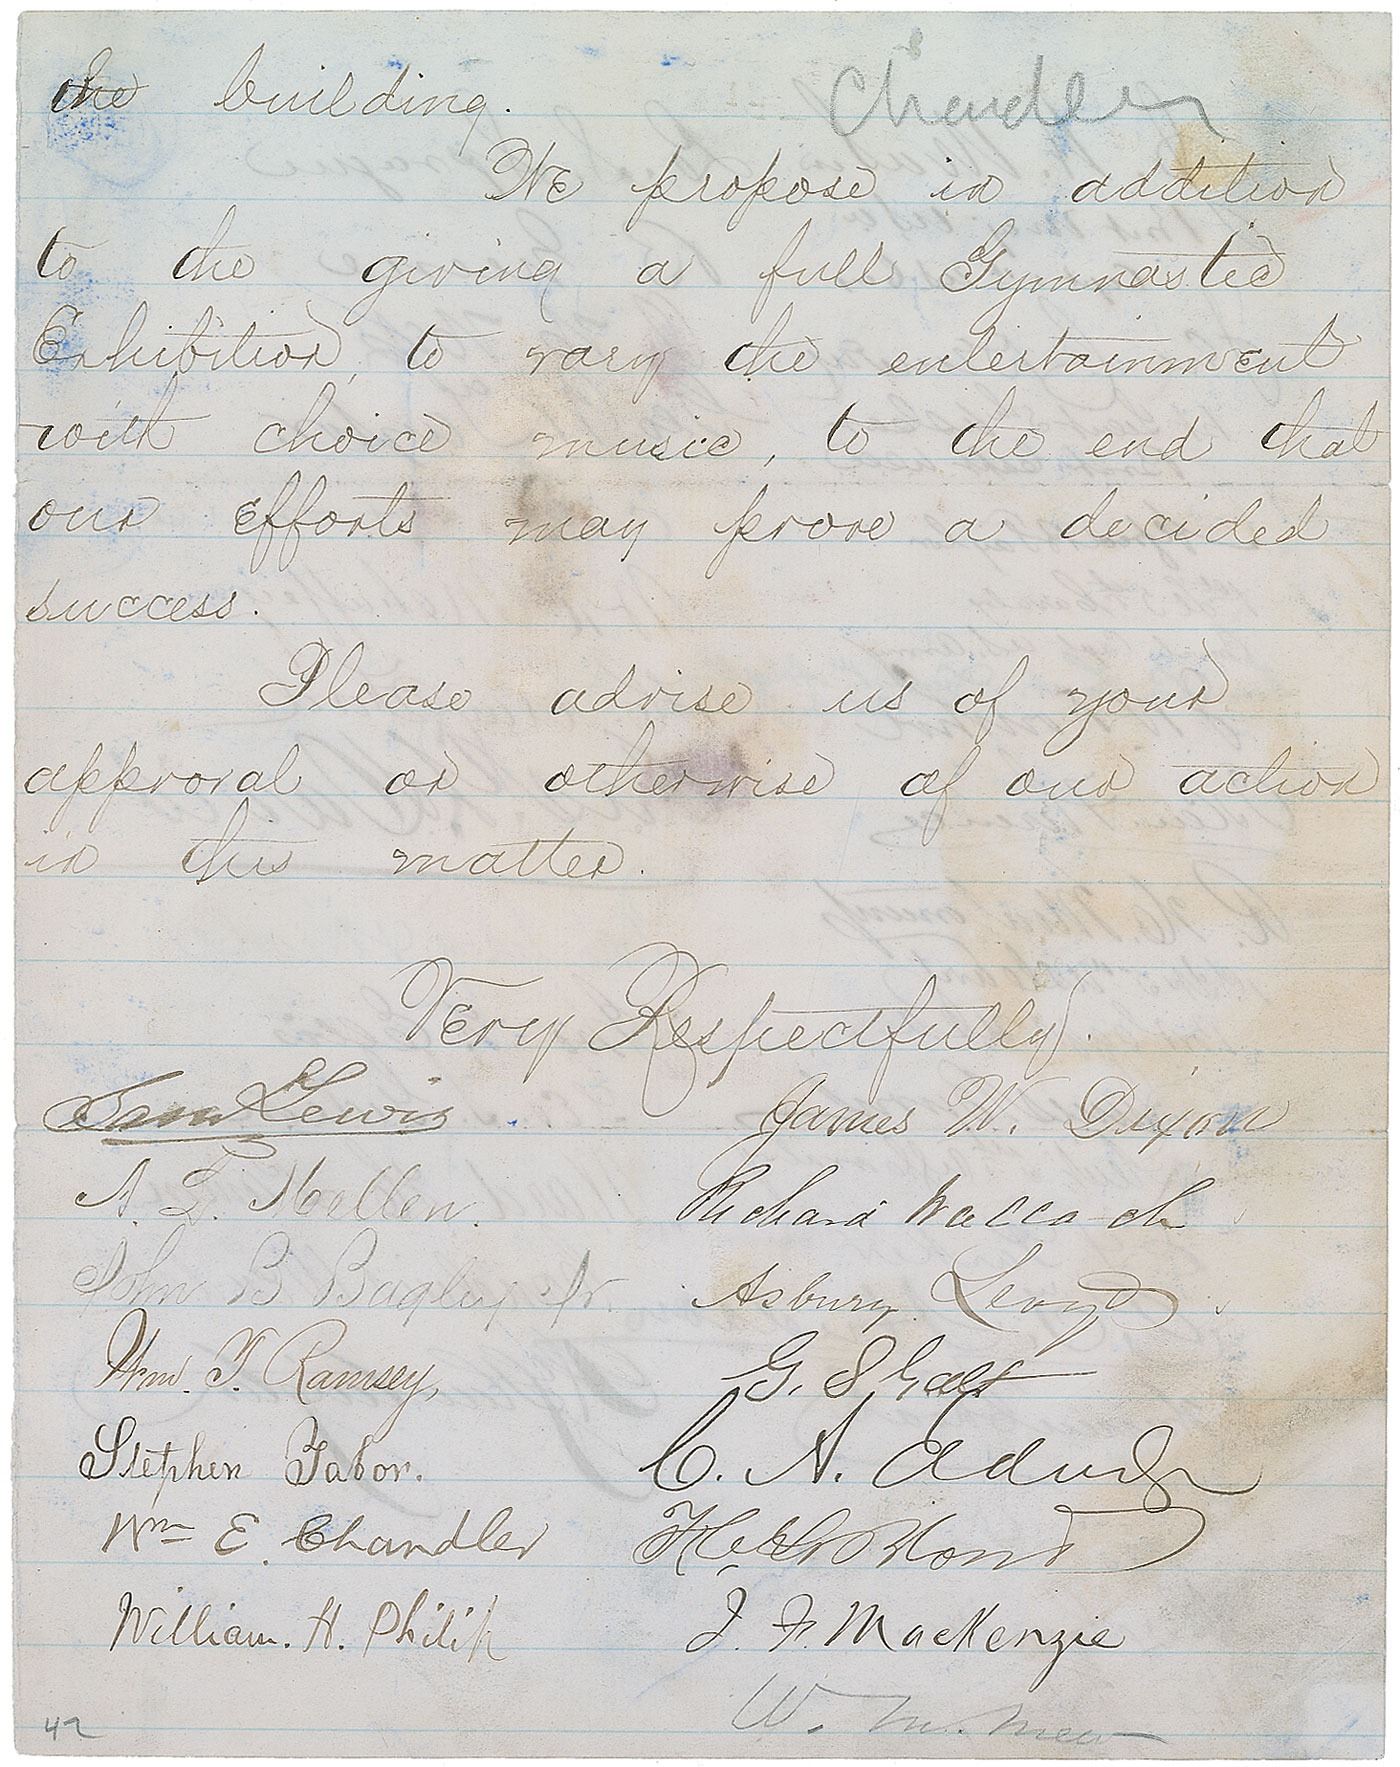 Chandler
the building.
We propose in addition
to the giving a full Gymnastic
Exhibition, to vary the entertainment
with choice music, to the end that
our efforts may prove a decided
success.
Please advise us of your
approval or otherwise of our action
in this matter.
Very Respectfully.
Sam Lewis
James W. Dixon
A. L. Mellen.
Richard Wallach
John B Bagley Jr.
Asbury Lloyd
Wm. T. Ramsey,
G.
Stephen Tabor.
C. A.
Wm E. Chandler
William. H. Philip
J. F. MacKenzie
W. M. Mew
42